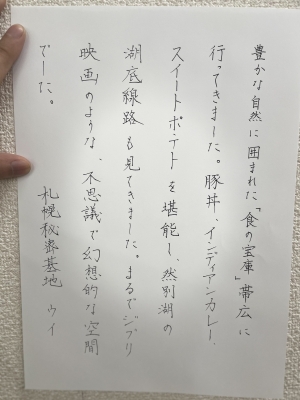 豊かな自然に囲まれた「食の宝庫」帯広に
行ってきました。豚丼、インディアンカレー、
スイートポテトを堪能し、然別湖の
湖底線路も見てきました。まるでジブリ
映画のような、不思議で幻想的な空間
でした。
札幌秘密基地 ウイ